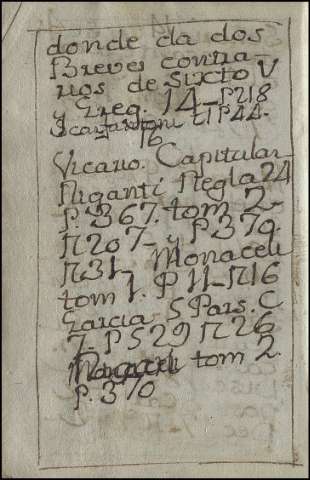 donde da dos
Breves contra-
rios de Sixto V
y Greg. 14 - P 218
t 1 P 44.
16
Vicario Capitular
Riganti Regla 24
P. 367. tom 2-
N 207- y P 379.
N 31- Monaceli
tom 1. P 11- N 16
Garcia 5 Pars. C
7. P 529 N 26
tom 2.
P. 370